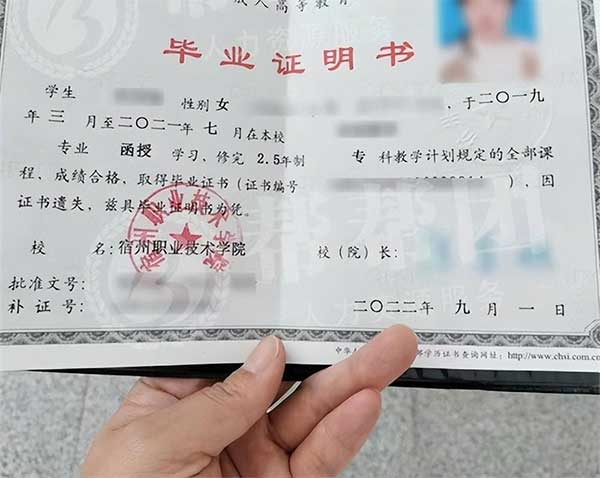 成人高等教育
毕业证明书
学生 性别 女 ，于二〇一九
年 三 月至二〇二一年 七 月在本校
专业 函授 学习，修完 2.5年制 专 科教学计划规定的全部课
程，成绩合格，取得毕业证书（证书编号 ），因
证书遗失，兹具毕业证明书为凭。
校 名：宿州职业技术学院 校（院）长：
批准文号：
补 证 号： 二〇二二年 九 月 一 日
学历证书查询网址：http://www.chsi.com.cn
宿州职业技术学院
帮帮团
人力资源服务